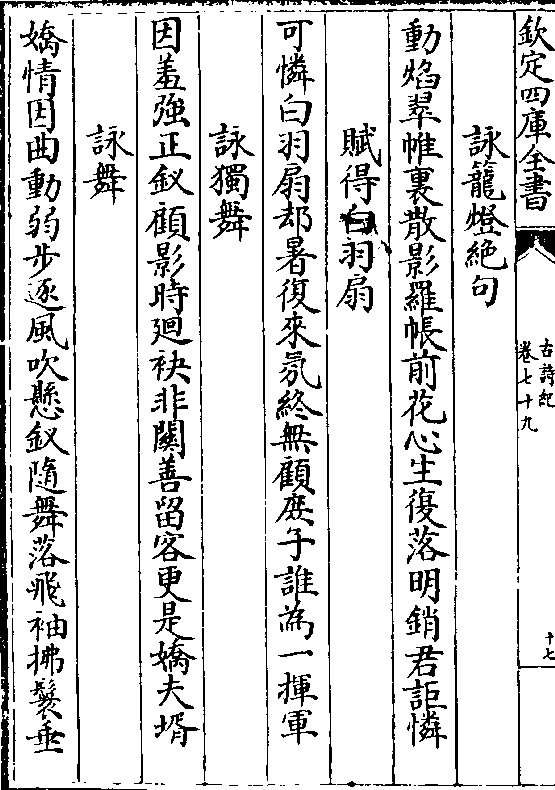 欽定四庫全書
古詩紀
卷七十九
十七
詠籠燈絶句
動焰翠帷裏散影羅帳前花心生復落明銷君詎憐
賦得白羽扇
可憐白羽扇却暑復來氛終無顧庶子誰為一揮軍
詠獨舞
因羞強正釵顧影時廻袂非關善留客更是嬌夫壻
詠舞
嬌情因曲動弱步逐風吹懸釵隨舞落飛袖拂鬟垂